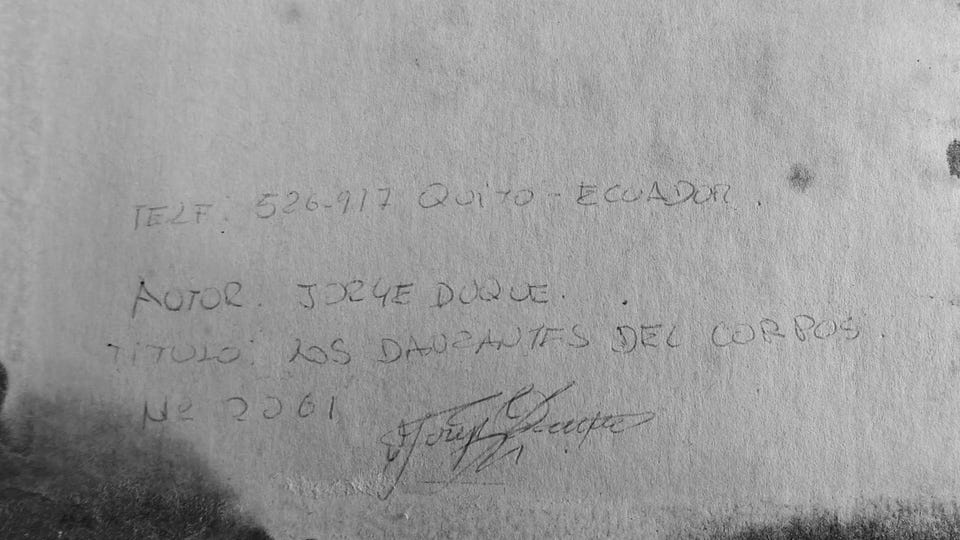 TELF: 526-917 QUITO - ECUADOR.
AUTOR. JORGE DUQUE.
TITULO: LOS DANZANTES DEL CORPOS.
Nº 2061
Jorge Duque